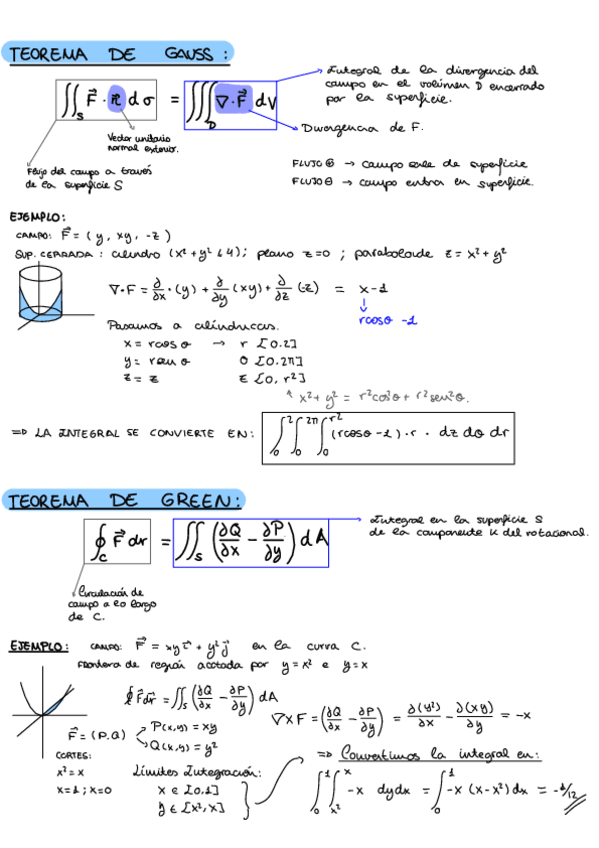 TEOREMA DE GAUSS:
∬_S F⃗ · n⃗ dσ = ∭_D ∇·F⃗ dV
Integral de la divergencia del
campo en el volumen D encerrado
por la superficie.
Divergencia de F.
Vector unitario
normal exterior.
Flujo del campo a través
de la superficie S
FLUJO ⊕ → campo sale de superficie
FLUJO ⊖ → campo entra en superficie.
EJEMPLO:
CAMPO: F⃗ = (y, xy, -z)
SUP. CERRADA: cilindro (x²+y² ≤ 4); plano z=0; paraboloide z = x²+y²
∇·F = ∂/∂x·(y) + ∂/∂y (xy) + ∂/∂z (-z) = x-1
↓
rcosθ -1
Pasamos a cilíndricas.
x = rcosθ → r [0,2]
y = rsenθ θ [0,2π]
z = z z [0, r²]
x²+y² = r²cos²θ + r²sen²θ.
⇒ LA INTEGRAL SE CONVIERTE EN: ∫₀² ∫₀^2π ∫₀^r² (rcosθ -1)·r · dz dθ dr
TEOREMA DE GREEN:
∮_C F⃗ dr = ∬_S (∂Q/∂x - ∂P/∂y) dA
Integral en la superficie S
de la componente K del rotacional.
Circulación de
campo a lo largo
de C.
EJEMPLO: CAMPO: F⃗ = xy i⃗ + y² j⃗ en la curva C.
Frontera de región acotada por y = x² e y = x
∮ F⃗ dr⃗ = ∬_S (∂Q/∂x - ∂P/∂y) dA
∇×F = (∂Q/∂x - ∂P/∂y) = ∂(y²)/∂x - ∂(xy)/∂y = -x
F⃗ = (P,Q)
P(x,y) = xy
Q(x,y) = y²
CORTES:
x² = x
x=1; x=0
Límites Integración:
x ∈ [0,1]
y ∈ [x², x]
⇒ Convertimos la integral en:
∫₀¹ ∫_x²^x -x dydx = ∫₀¹ -x (x-x²) dx = -1/12